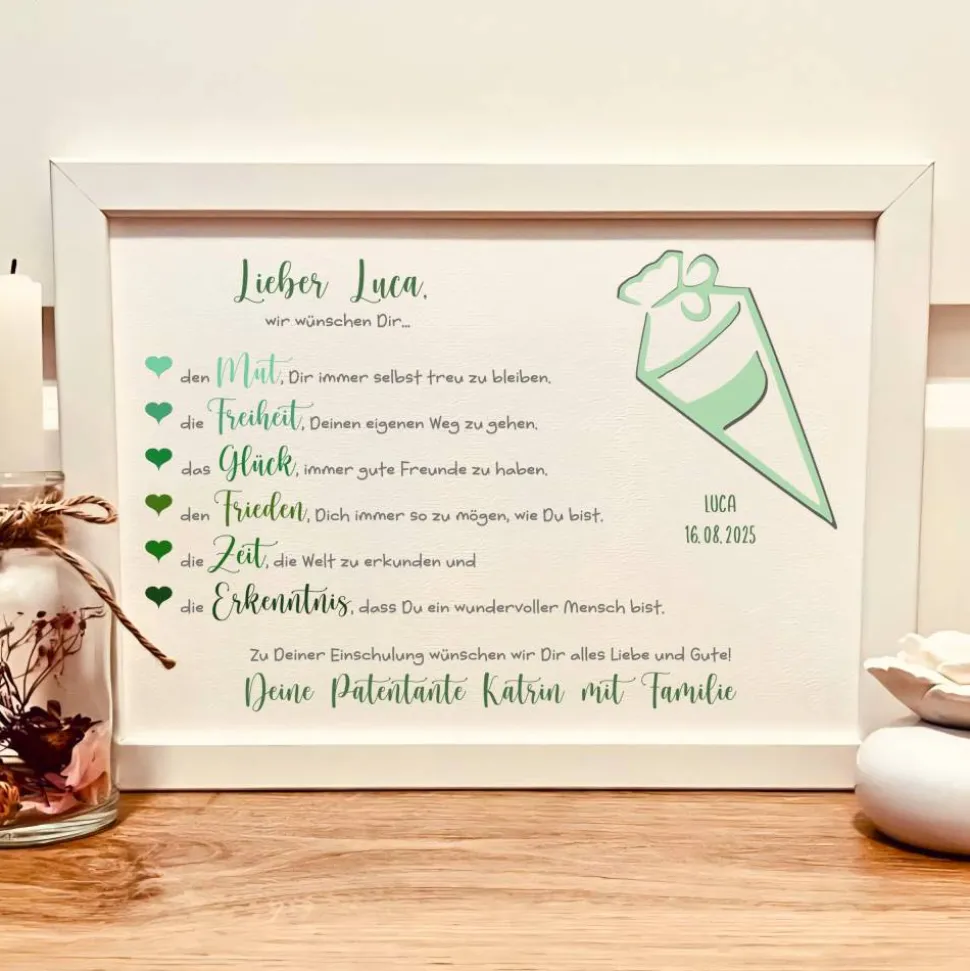 Lieber Luca,
wir wünschen Dir...
den Mut, Dir immer selbst treu zu bleiben.
die Freiheit, Deinen eigenen Weg zu gehen.
das Glück, immer gute Freunde zu haben.
den Frieden, Dich immer so zu mögen, wie Du bist.
die Zeit, die Welt zu erkunden und
die Erkenntnis, dass Du ein wundervoller Mensch bist.
Zu Deiner Einschulung wünschen wir Dir alles Liebe und Gute!
Deine Patentante Katrin mit Familie
LUCA
16.08.2025